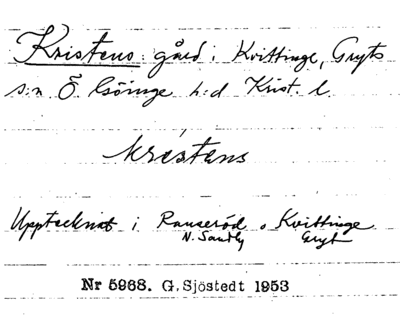 Kristens: gård i Kvittinge, Gryts
s:n Ö. Göinge h:d Krist. l.
kristens
Upptecknat i Ranseröd o Kvittinge
N. Sandby Gryt
Nr 5968. G. Sjöstedt 1953